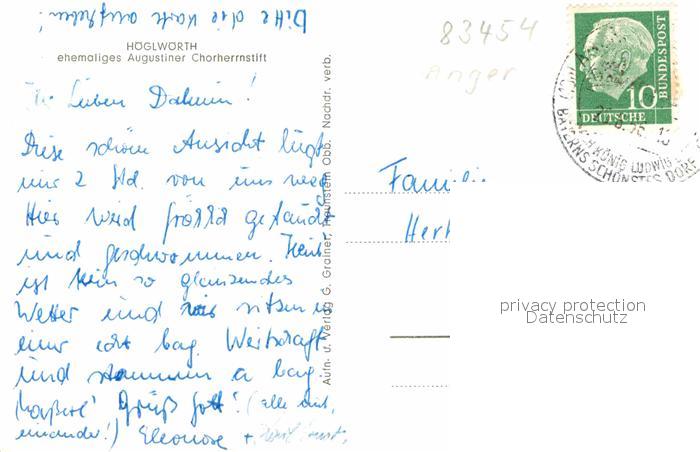 Bitte die Karte aufheben!
HÖGLWÖRTH
ehemaliges Augustiner Chorherrnstift
Ihr Lieben Daheim!
Diese schöne Ansicht liegt
nur 2 Std. von uns weg
Hier wird gekandet
und geschwommen. Heut'
ist kein so glänzendes
Wetter und wir sitzen in
einer echt bay. Wirtschaft
und stemmen a bay.
Grüß Gott! (alle mit-
einander!) Eleonore +
Aufn- u. Verlag G. Grainer, Traunstein Obb. Nachdr. verb.
83454
Anger
Famili
Herr
DEUTSCHE
BUNDESPOST
10
KÖNIG LUDWIG
BAYERNS SCHÖNSTES DORF
privacy protection
Datenschutz